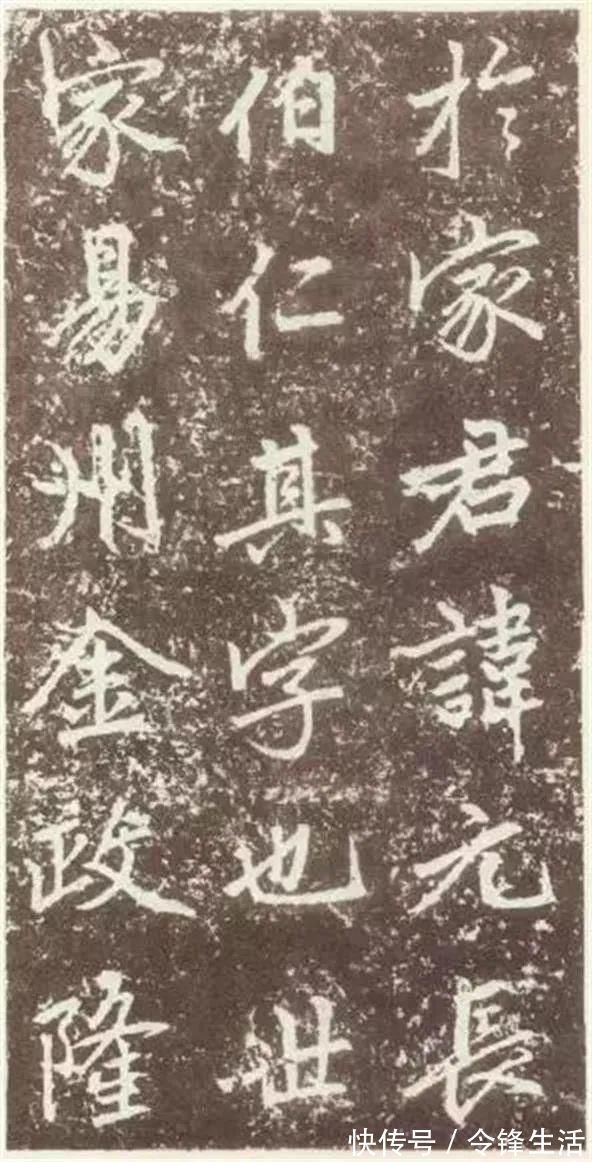 於家君諱元長
伯仁其字也世
家易州金政隆
快传号/令锋生活